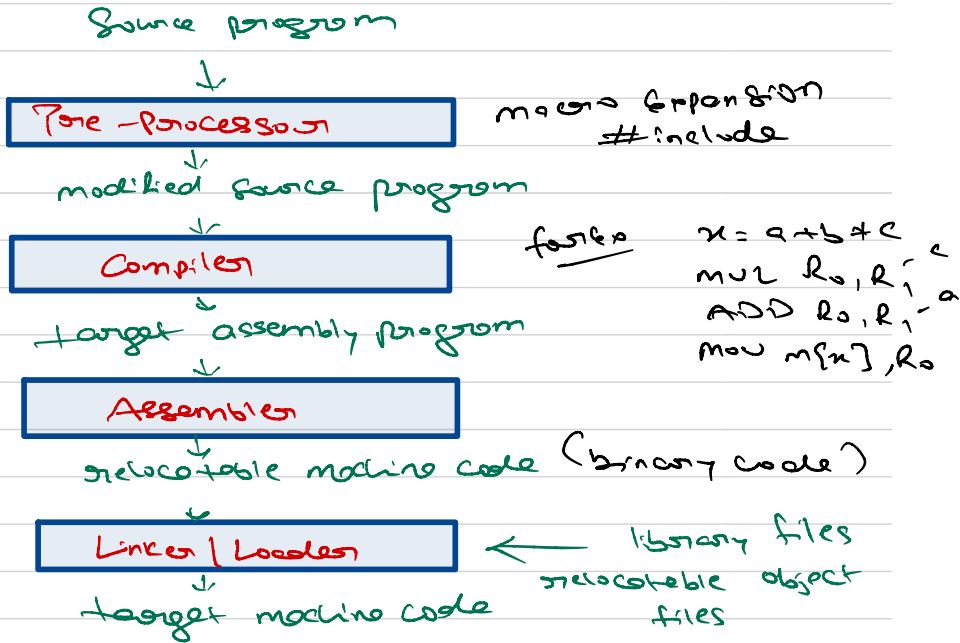 Source program
↓
Pre-Processor
macro Expansion
#include
↓
modified source program
↓
Compiler
for ex
x = a+b*c
MUL R0, R1 - c
ADD R0, R1 - a
MOV M[x], R0
↓
target assembly program
↓
Assembler
↓
relocatable machine code (binary code)
↓
Linker | Loader
← library files
relocatable object
files
↓
target machine code